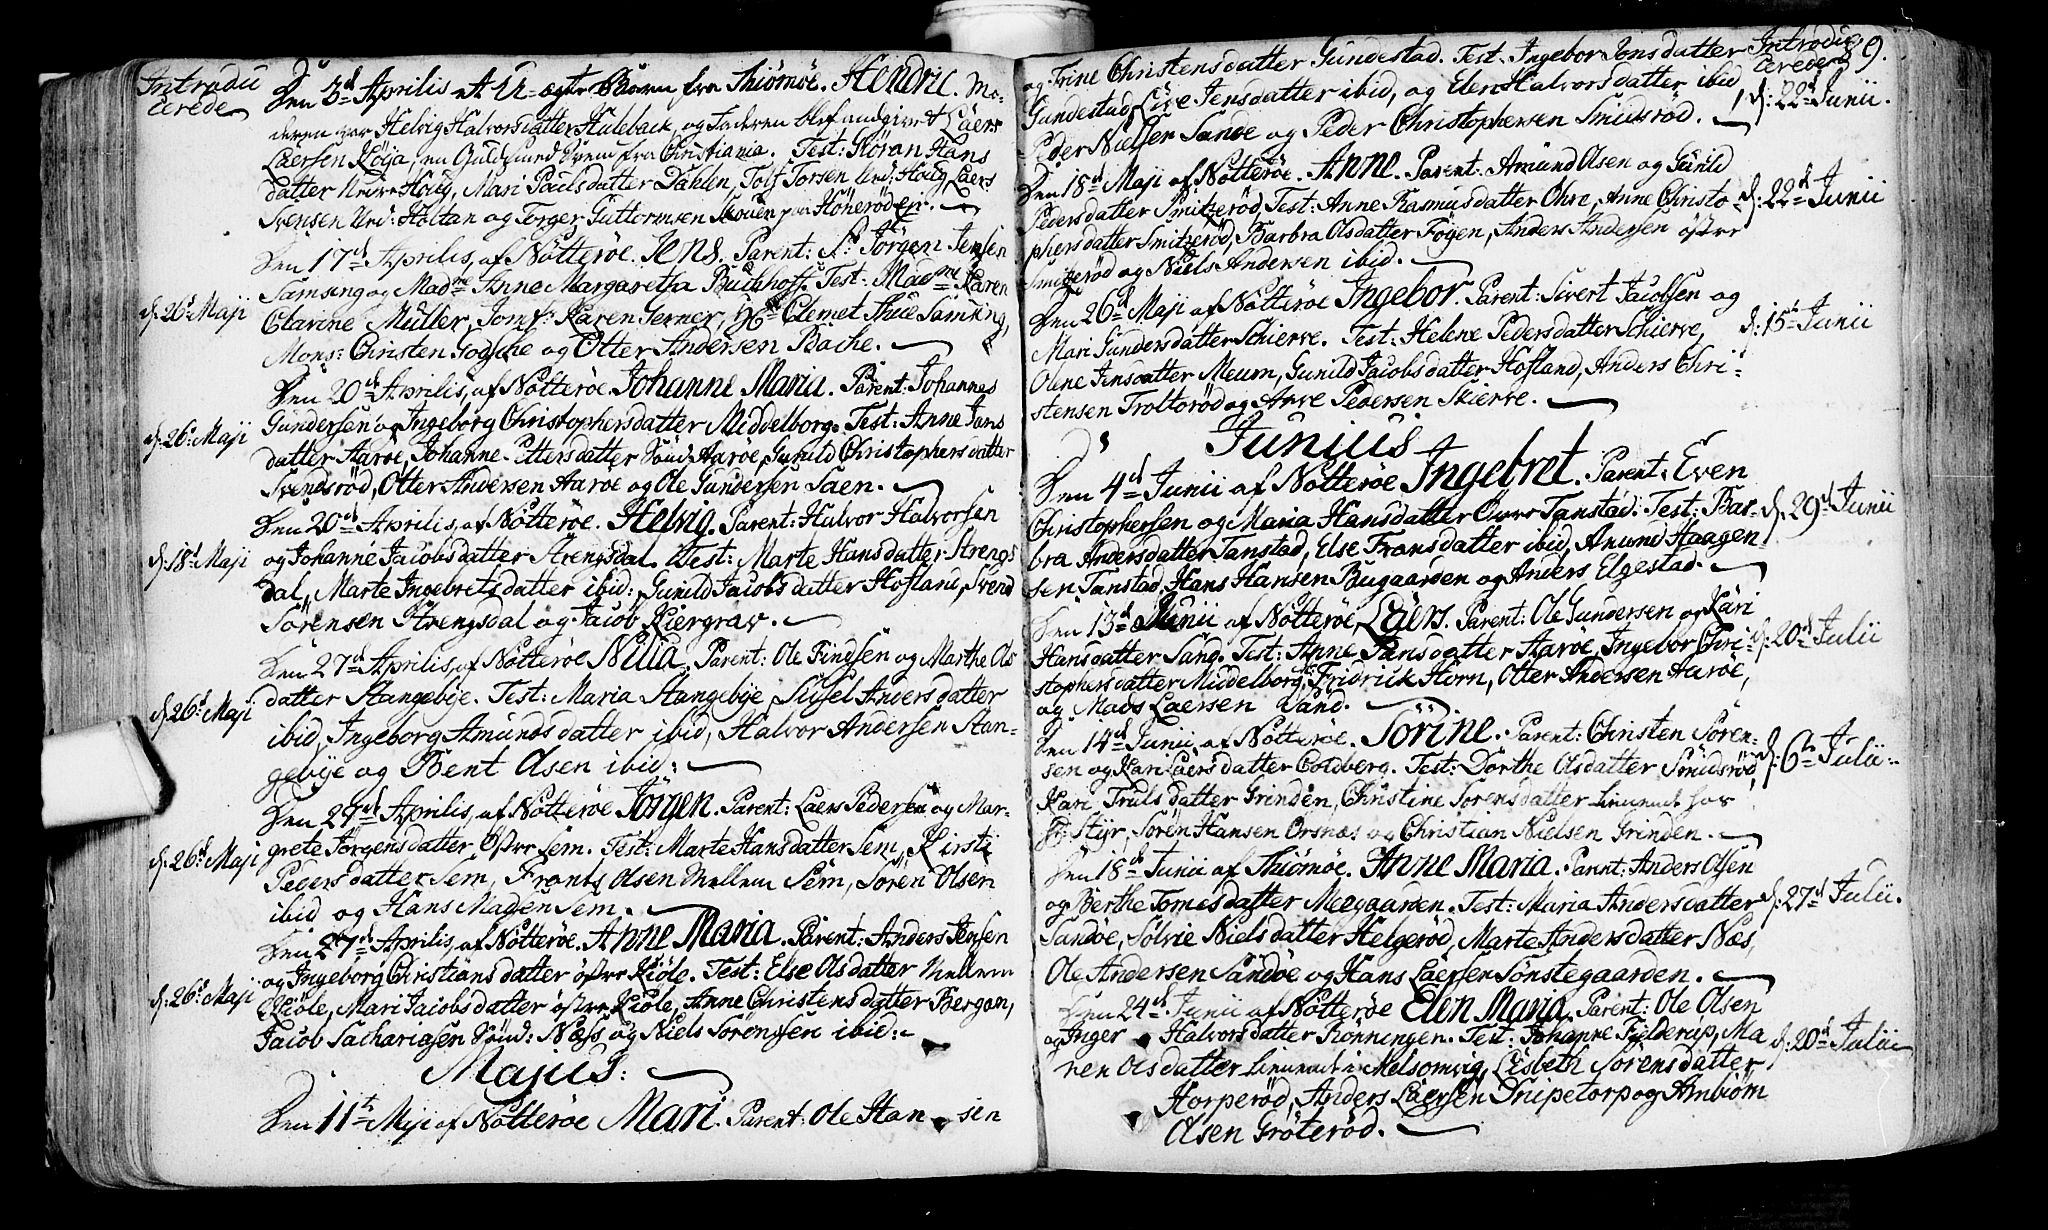 Introdu
cerede
Den 3d Aprilis Et U-ægte Barn fra Thiömöe. Hendric. Mo-
deren var Helvig Halvorsdatter Huleback og Faderen blef andgivet Laers
Laersen Röya, en Guldsmed Svend fra Christiania. Test: Göran Hans
datter Nedre Houg, Mari Paulsdatter Dahlen, Tolf Torsen Ned: Houg Laers
Svensen Ned: Holtan og Torger Guttormsen Skouen paa Hönerödejr.
Den 17d Aprilis, af Nötteröe. Jens. Parent: Sr Jörgen Jensen
d: 26d Maji
Samsing og Madme Anne Margaretha Buchhoff. Test: Madme Karen
Clarine Müller, Jomf: Karen Gerner, Hr Clemet Thue Samsing,
Mons: Christen Godsche og Otter Andersen Bache.
Den 20d Aprilis, af Nötteröe Johanne Maria. Parent: Johannes
d: 26d Maji
Gundersen og Ingeborg Christophersdatter Middelborg. Test: Anne Jans
datter Aaröe, Johanne Pettersdatter Sönd: Aaröe, Gunild Christophersdatter
Svendsröd, Otter Andersen Aaröe og Ole Gundersen Saen.
Den 20d Aprilis, af Nötteröe. Helvig. Parent: Halvor Halvorsen
d: 18d Maji
og Johanne Jacobsdatter Strengsdal. Test: Marte Hansdatter Strengs
dal, Marte Ingebretsdatter ibid: Gunild Jacobsdatter Hofland, Svend
Sörensen Strengsdal og Jacob Kiergrav.
Den 27d Aprilis, af Nötteröe Nilia. Parent: Ole Findsen og Marthe Ols
d: 26d Maji
datter Stangebye. Test: Maria Stangebye, Sissel Andersdatter
ibid, Ingeborg Amundsdatter ibid, Halvor Andersen Stan-
gebye og Bent Olsen ibid:
Den 27d Aprilis, af Nötteröe Jörgen. Parent: Laers Pedersen og Mar-
d: 26d Maji
grete Jörgensdatter Östre Sem. Test: Marte Hansdatter Sem, Kirsti
Pedersdatter Sem, Frants Olsen Mellem Sem, Sören Olsen
ibid og Hans Madsen Sem.
Den 27d Aprilis, af Nötteröe. Anne Maria. Parent: Anders Jensen
d: 26d Maji
og Ingeborg Christiansdatter östre Kiöle. Test: Else Olsdatter Mellem
Kiöle, Mari Jacobsdatter östre Kiöle, Anne Christensdatter Bergan,
Jacob Sachariasen Sönd: Næss og Niels Sörenssen ibid:
Majus:
Den 11t Maji af Nötteröe Mari. Parent: Ole Han-sen
Introdu 89.
cerede
og Trine Christensdatter Gundestad. Test: Ingebor Jonsdatter
Gundestad, Live Jensdatter ibid, og Elen Halvorsdatter ibid,
d: 22d Junii.
Peder Nielsen Sande og Peder Christophersen Smidsröd.
Den 18d Maji af Nötteröe. Anne. Parent: Amund Olsen og Gunild
Pedersdatter Smitzeröd, Test: Anne Rasmusdatter Ohre, Anne Christo-
d: 22d Junii
phersdatter Smitzeröd, Barbra Olsdatter Föyen, Anders Andersen östre
Smitzeröd og Niels Andersen ibid.
Den 26d Maji af Nötteröe Ingebor. Parent: Sivert Jacobsen og
d: 15d Junii
Mari Gundersdatter Schierve. Test: Helene Pedersdatter Schierve,
Olene Jensdatter Meum, Gunild Jacobsdatter Hofland, Anders Chri-
stensen Troltoröd og Arve Pedersen Skierve.
Junius
Den 4d Junii af Nötteröe Ingebret. Parent: Even
Christophersen og Maria Hansdatter Övre Tanstad: Test: Bar-
d: 29d Junii
bra Andersdatter Tanstad, Else Fransdatter ibid, Amund Haagen-
sen Tanstad, Hans Hansen Bugaarden og Anders Elgestad.
Den 13d Junii af Nötteröe, Laers. Parent: Ole Gundersen og Kari
Hansdatter Sand. Test: Anne Jansdatter Aaröe, Ingebor Chri-
d: 20d Julii
stophersdatter Middelborg, Fridrick Hörn, Otter Andersen Aaröe,
og Mads Laersen Sand.
Den 14d Junii, af Nötteröe. Sörine. Parent: Christen Sören-
sen og Kari Laersdatter Coldberg. Test: Dorthe Olsdatter Smidsröd,
d: 6te Julii.
Kari Trulsdatter Grinden, Christine Sorensdatter tienende hos
Hr: Styr, Sören Hansen Orsnæs og Christian Nielsen Grinden.
Den 18d Junii af Thiömöe. Anne Maria. Parent: Anders Olsen
og Berthe Tomesdatter Meegaarden. Test: Maria Andersdatter
d: 27d Julii.
Sandöe, Sölvie Nielsdatter Helgeröd, Marte Andersdatter Næs,
Ole Andersen Sandöe og Hans Laersen Sönstegaarden.
Den 24d Junii af Nötteröe Elen Maria. Parent: Ole Olsen
og Inger Halvorsdatter Rönningen. Test: Johanne Fielderup, Ma
d: 20d Julii
ren Olsdatter tienende i Melsomvig, Lisbeth Sörensdatter
Horperöd, Anders Laersen Knipetorp og Arnbiörn
Olsen Gröteröd.